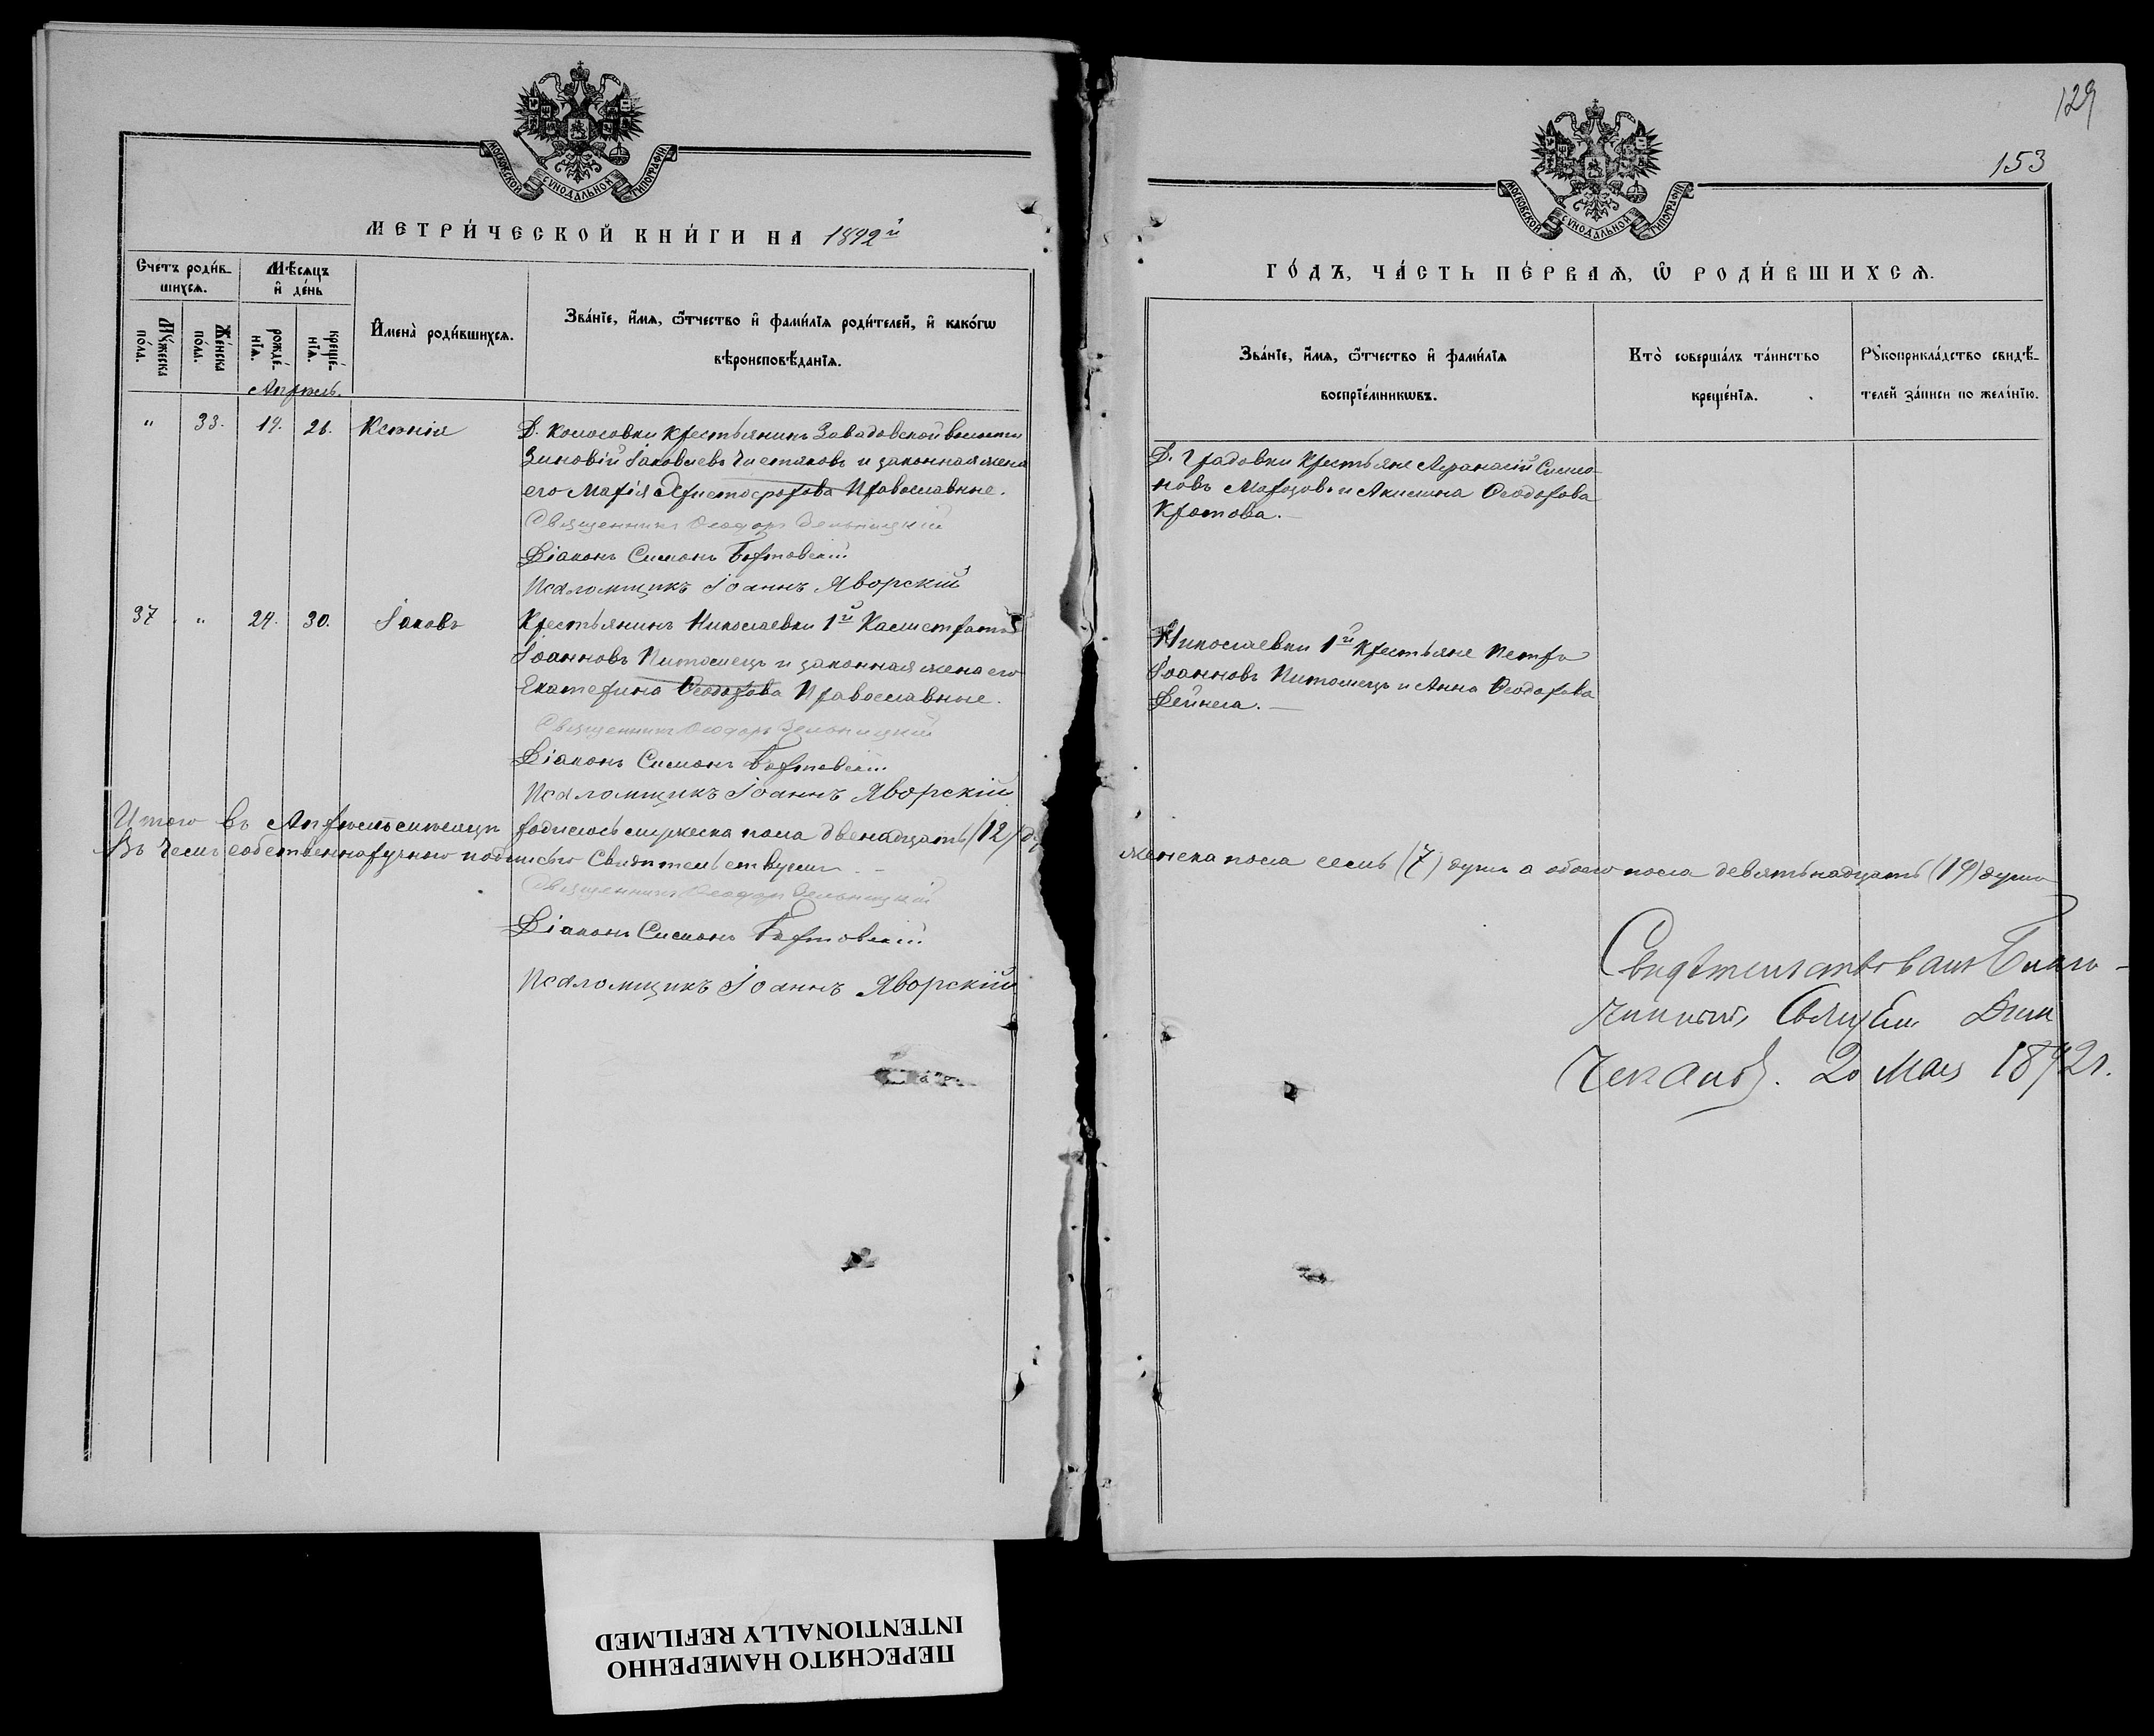 129
153
МОСКОВСКОЙ СѴНОДАЛЬНОЙ ТИПОГРАФІИ
МЕТРИ́ЧЕСКОЙ КНИ́ГИ НА 1892й
Сче́тъ роди́в-
шихсѧ.
Мѣ́сѧцъ
и҆ де́нь
Мꙋ́жеска
по́ла.
Же́нска
по́ла.
рожде́-
нїѧ.
креще́-
нїѧ.
И҆мена̀ роди́вшихсѧ.
Зва́нїе, и҆́мѧ, ѻ҆́тчество и҆ фами́лїѧ роди́телей, и҆ како́гѡ
вѣроисповѣ́данїѧ.
Апрѣль.
" 33. 19. 26. Ксенія
Д. Колосовки крестьянинъ Завадовской волости
Зиновій Іаковлевъ Чистяковъ и законная жена
его Марія Христофорова Православные.
Священникъ Ѳеодоръ
Діаконъ Симонъ
Псаломщикъ Іоаннъ Яворскій
37 " 24. 30. Іаковъ
Крестьянинъ Николаевки 1й Калистратъ
Іоанновъ Питомецъ и законная жена его
Екатерина Ѳеодорова Православные.
Священникъ Ѳеодоръ
Діаконъ Симонъ
Псаломщикъ Іоаннъ Яворскій
Итого въ Апрѣлѣ мѣсяцѣ родилось мужеска пола двенадцать (12)
Въ чемъ собственноручною подписью Свидѣтельствуемъ.
Священникъ Ѳеодоръ
Діаконъ Симонъ
Псаломщикъ Іоаннъ Яворскій
МОСКОВСКОЙ СѴНОДАЛЬНОЙ ТИПОГРАФІИ
ГО́ДЪ, ЧА́СТЬ ПЕ́РВАѦ, Ѡ҆ РОДИ́ВШИХСѦ.
Зва́нїе, и҆́мѧ, ѻ҆́тчество и҆ фами́лїѧ
воспрїе́мникѡвъ.
Кто̀ соверша́лъ та́инство
креще́нїѧ.
Рꙋкоприкла́дство свидѣ́-
телей за́писи по жела́нїю.
Д. Градовки крестьяне Афанасій Симо-
новъ Морозовъ и Акилина Ѳеодорова
Кротова.
Николаевки 1й крестьяне Петръ
Іоанновъ Питомецъ и Анна Ѳеодорова
Дейнега.
женска пола семь (7) душъ а обоего пола девятьнадцать (19) душъ
Свидѣтельствовалъ Благо-
чинный,
20 Мая 1892 г.
ПЕРЕСНЯТО НАМЕРЕННО
INTENTIONALLY REFILMED